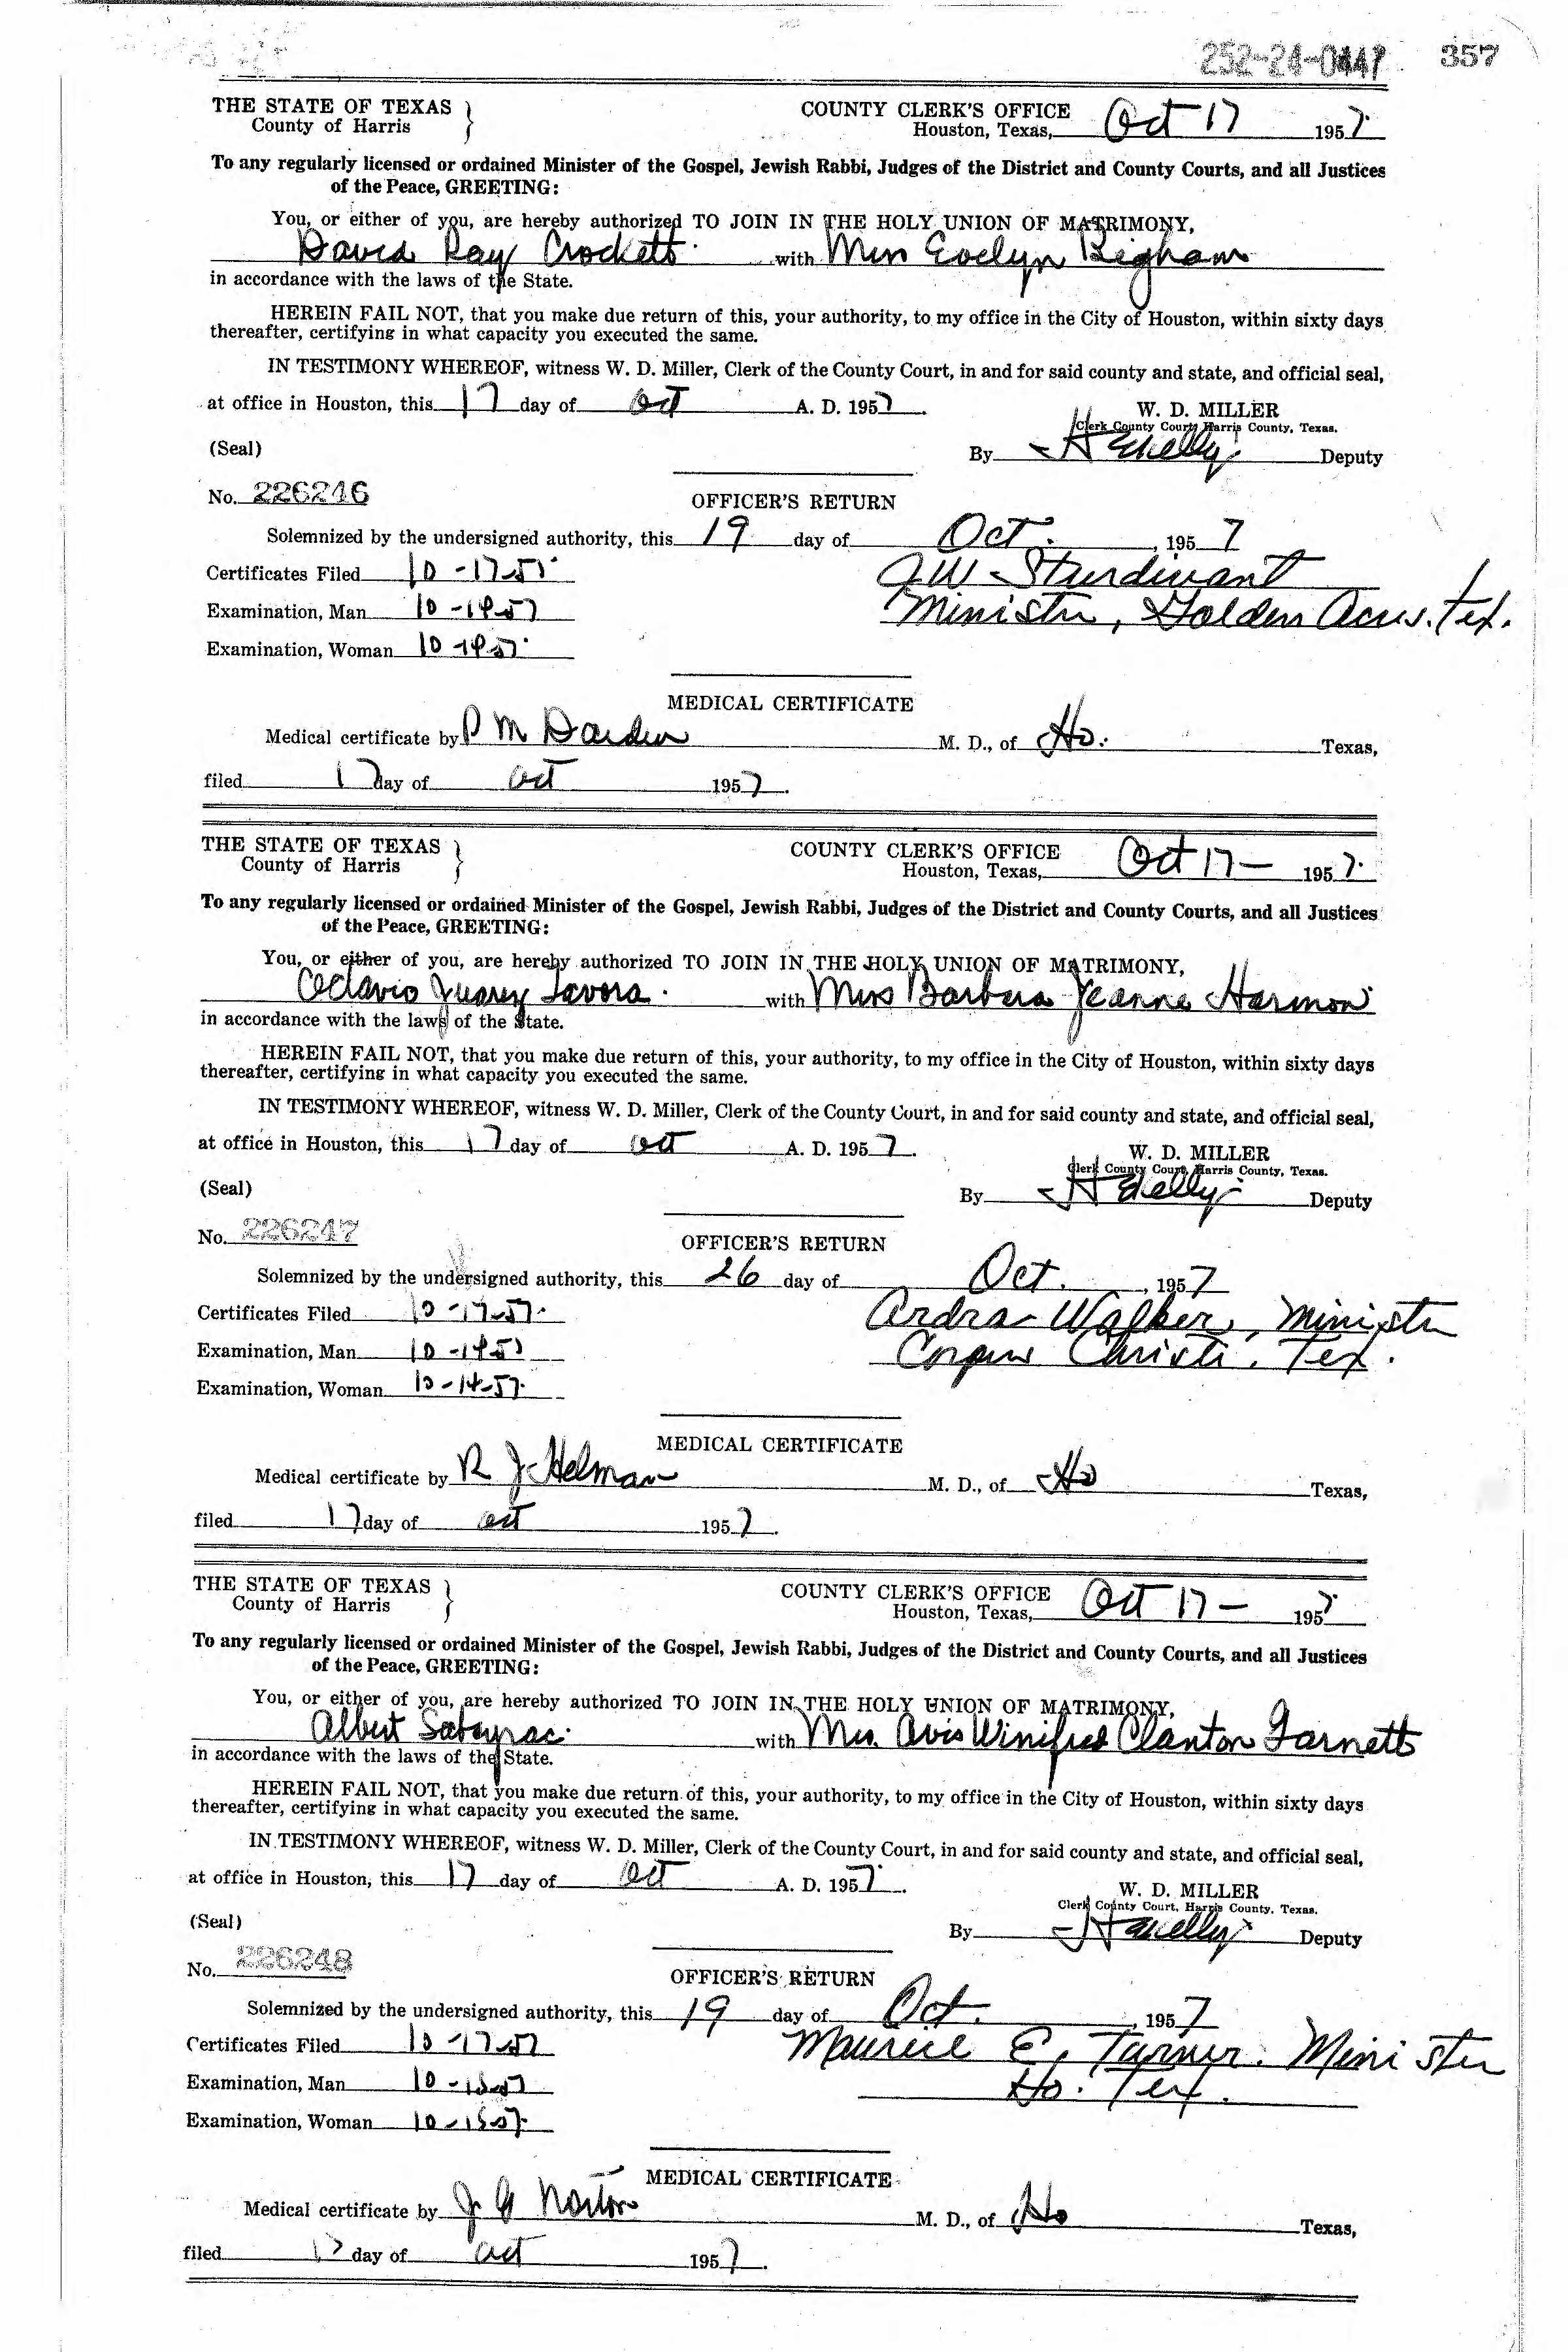 252-24-0447 357
THE STATE OF TEXAS
County of Harris
COUNTY CLERK'S OFFICE
Houston, Texas, Oct 17 1957.
To any regularly licensed or ordained Minister of the Gospel, Jewish Rabbi, Judges of the District and County Courts, and all Justices
of the Peace, GREETING:
You, or either of you, are hereby authorized TO JOIN IN THE HOLY UNION OF MATRIMONY,
David Ray Crockett with Miss Evelyn Bigham
in accordance with the laws of the State.
HEREIN FAIL NOT, that you make due return of this, your authority, to my office in the City of Houston, within sixty days
thereafter, certifying in what capacity you executed the same.
IN TESTIMONY WHEREOF, witness W. D. Miller, Clerk of the County Court, in and for said county and state, and official seal,
at office in Houston, this 17 day of Oct A. D. 1957.
W. D. MILLER
Clerk County Court, Harris County, Texas.
(Seal)
By Deputy
No. 226246
OFFICER'S RETURN
Solemnized by the undersigned authority, this 19 day of Oct. , 1957
Certificates Filed 10-17-57
J W Sturdivant
Examination, Man
Minister, Golden Acres, Tex.
Examination, Woman
MEDICAL CERTIFICATE
Medical certificate by P M Darden M. D., of Ho. Texas,
filed 17 day of Oct 1957.
THE STATE OF TEXAS
County of Harris
COUNTY CLERK'S OFFICE
Houston, Texas, Oct 17 — 1957.
To any regularly licensed or ordained Minister of the Gospel, Jewish Rabbi, Judges of the District and County Courts, and all Justices
of the Peace, GREETING:
You, or either of you, are hereby authorized TO JOIN IN THE HOLY UNION OF MATRIMONY,
Octavio Juarez Tavera. with Miss Barbara Jeanne Harmon
in accordance with the laws of the State.
HEREIN FAIL NOT, that you make due return of this, your authority, to my office in the City of Houston, within sixty days
thereafter, certifying in what capacity you executed the same.
IN TESTIMONY WHEREOF, witness W. D. Miller, Clerk of the County Court, in and for said county and state, and official seal,
at office in Houston, this 17 day of Oct A. D. 1957.
W. D. MILLER
Clerk County Court, Harris County, Texas.
(Seal)
By Deputy
No. 226247
OFFICER'S RETURN
Solemnized by the undersigned authority, this 26 day of Oct. , 1957
Certificates Filed 10-17-57.
Ardra Walker, Minister
Examination, Man 10-14-57
Corpus Christi, Tex.
Examination, Woman 10-14-57.
MEDICAL CERTIFICATE
Medical certificate by R J Helman M. D., of Ho Texas,
filed 17 day of Oct 1957.
THE STATE OF TEXAS
County of Harris
COUNTY CLERK'S OFFICE
Houston, Texas, Oct 17 — 1957
To any regularly licensed or ordained Minister of the Gospel, Jewish Rabbi, Judges of the District and County Courts, and all Justices
of the Peace, GREETING:
You, or either of you, are hereby authorized TO JOIN IN THE HOLY UNION OF MATRIMONY,
Albert Sabayrac. with Mrs. Avis Winifred Clanton Garnett
in accordance with the laws of the State.
HEREIN FAIL NOT, that you make due return of this, your authority, to my office in the City of Houston, within sixty days
thereafter, certifying in what capacity you executed the same.
IN TESTIMONY WHEREOF, witness W. D. Miller, Clerk of the County Court, in and for said county and state, and official seal,
at office in Houston, this 17 day of Oct A. D. 1957.
W. D. MILLER
Clerk County Court, Harris County, Texas.
(Seal)
By Deputy
No. 226248
OFFICER'S RETURN
Solemnized by the undersigned authority, this 19 day of Oct. , 1957
Certificates Filed 10-17-57
Maurice E. Turner. Minister
Examination, Man 10-15-57
Ho. Tex.
Examination, Woman 10-15-57.
MEDICAL CERTIFICATE
Medical certificate by J G Norton M. D., of Ho Texas,
filed 17 day of Oct 1957.